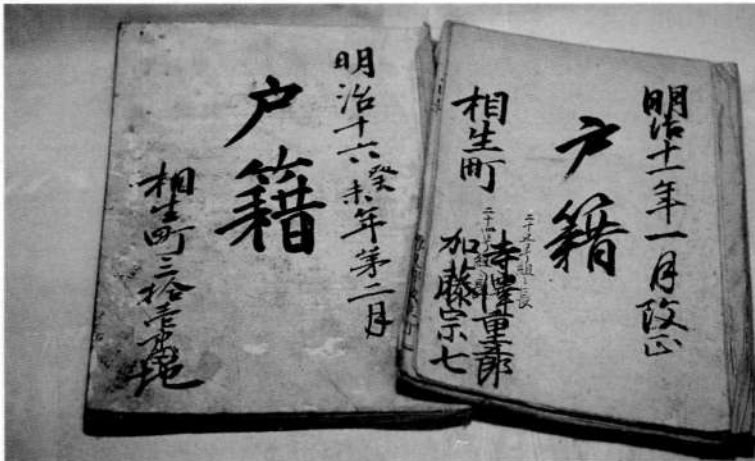 明治十一年一月改正
戸籍
相生町
二十五番組々長
寺澤重郎
加藤宗七
明治十六癸未年第二月
戸籍
相生町三拾壱番地